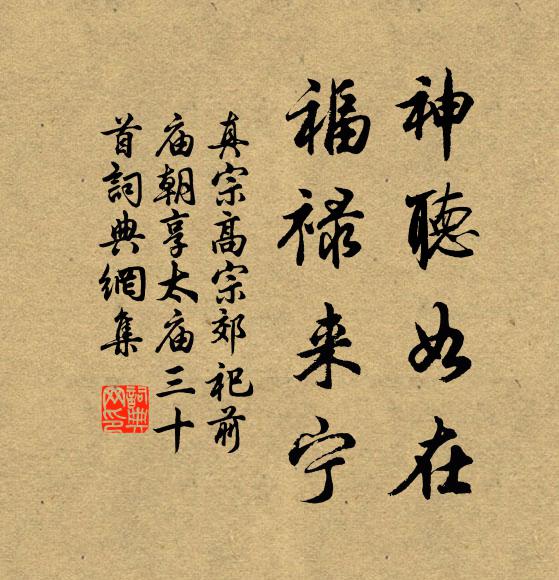 神聽如在
福祿来宁
真宗高宗郊祀前
庙朝享太庙三十
首詞典網集
詞典
网印